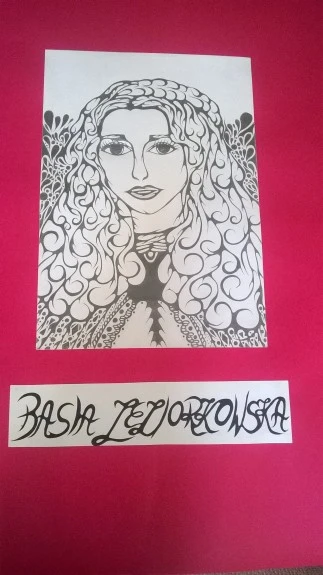 BASIA JEZIORKOWSKA